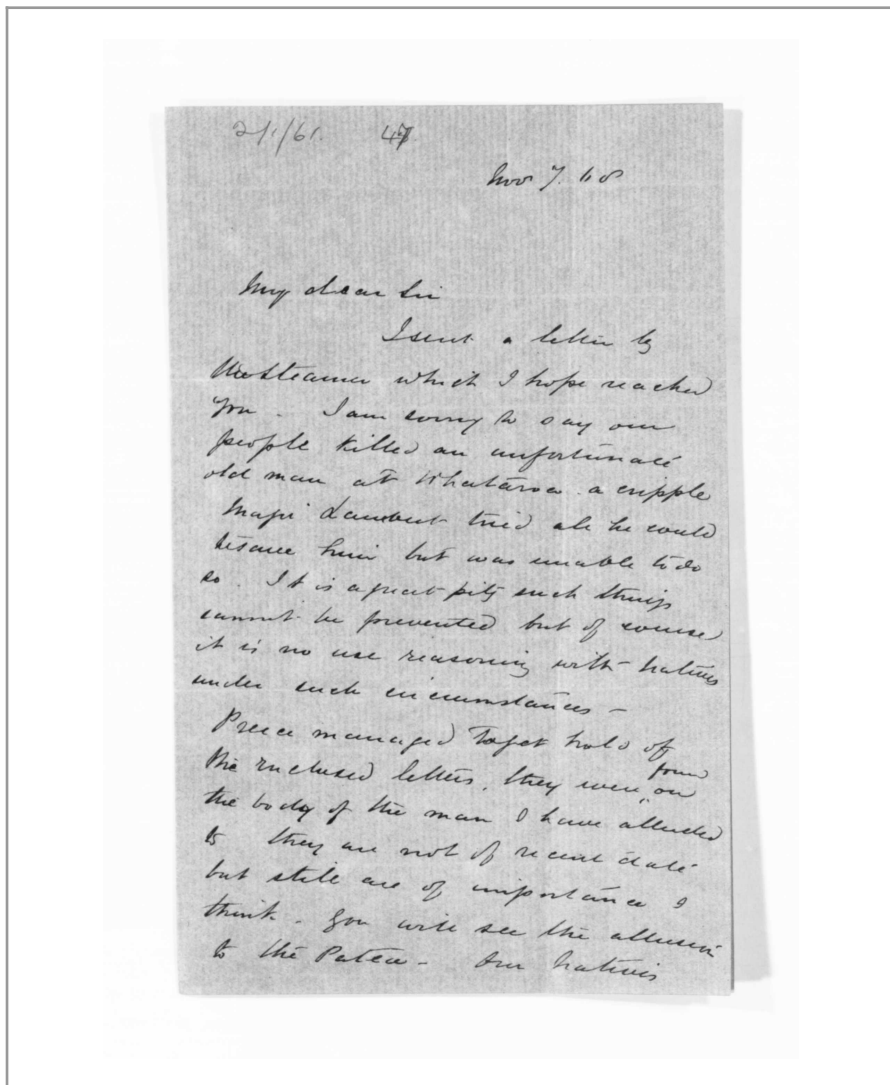 2/1/61. 47
Nov 7. 68
My dear Sir
I sent a letter by
the Steamer which I hope reached
you - I am sorry to say our
people killed an unfortunate
old man at Whataroa a cripple
Major Lambert tried all he could
to save him but was unable to do
so. It is a great pity such things
cannot be prevented but of course
it is no use reasoning with natives
under such circumstances -
Preece managed to get hold of
the enclosed letters, they were found on
the body of the man I have alluded
to they are not of recent date
but still are of importance I
think - You will see the allusion
to the Patea - Our Natives